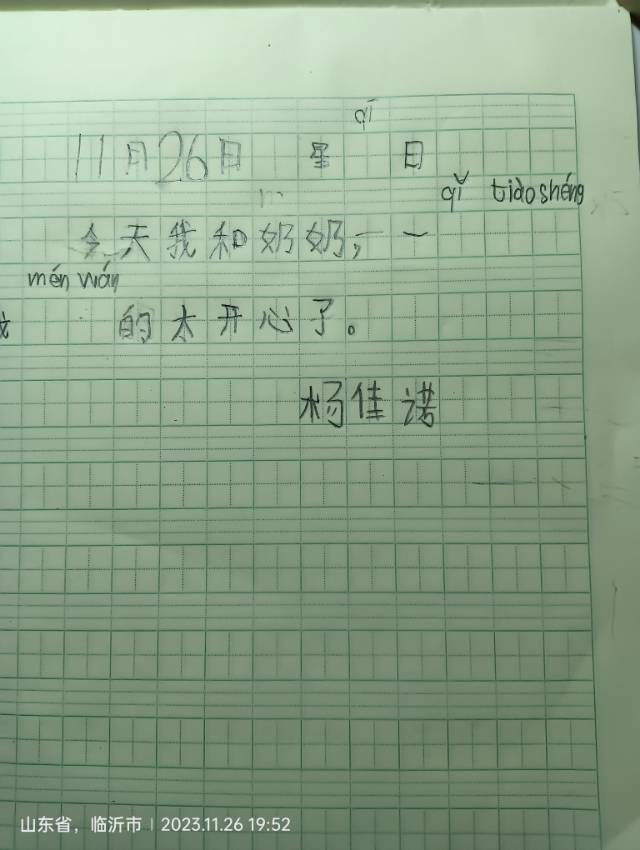 qī
11月26日 星 日
qǐ tiàoshéng
今天我和奶奶,一
mén wán
的太开心了。
杨佳诺
山东省,临沂市 | 2023.11.26 19:52